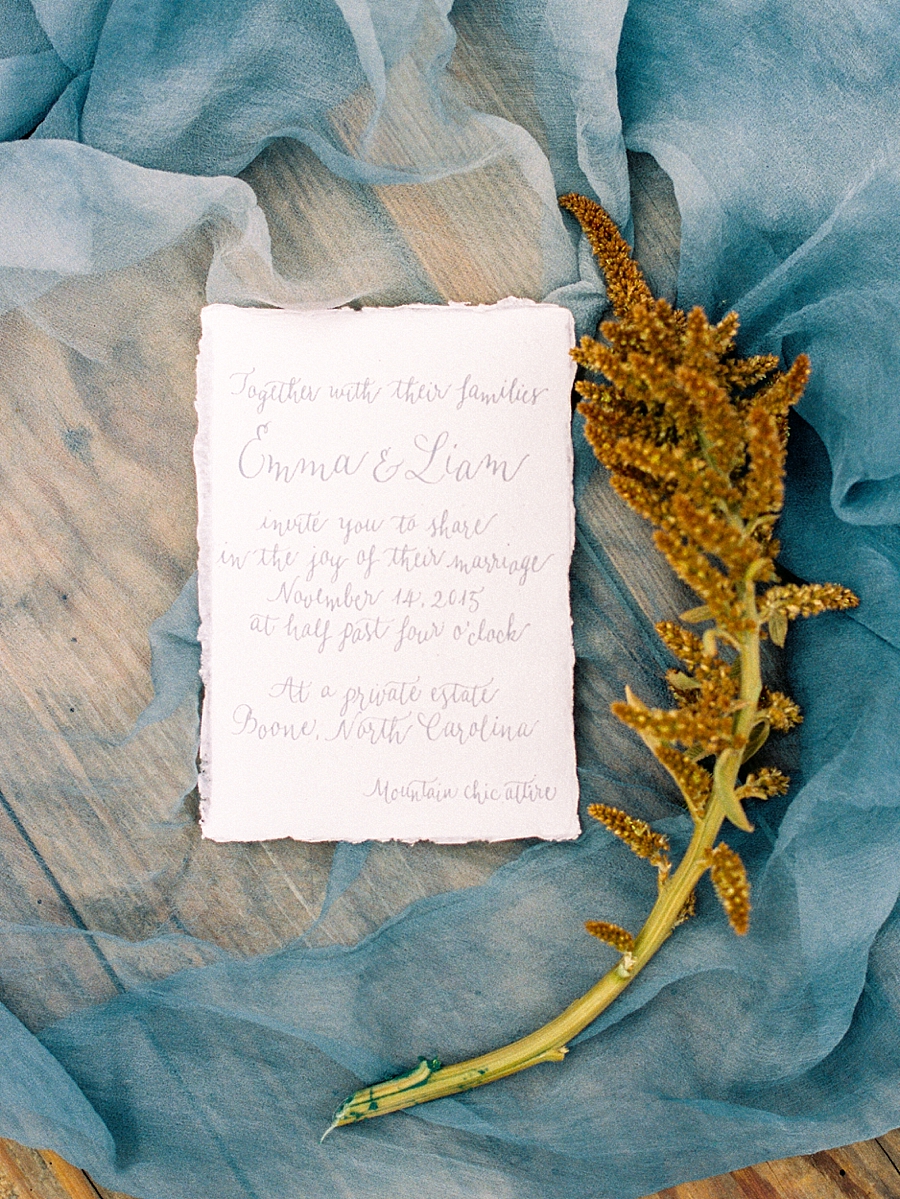 Together with their families
Emma & Liam
invite you to share
in the joy of their marriage
November 14, 2015
at half past four o'clock
At a private estate
Boone, North Carolina
Mountain chic attire